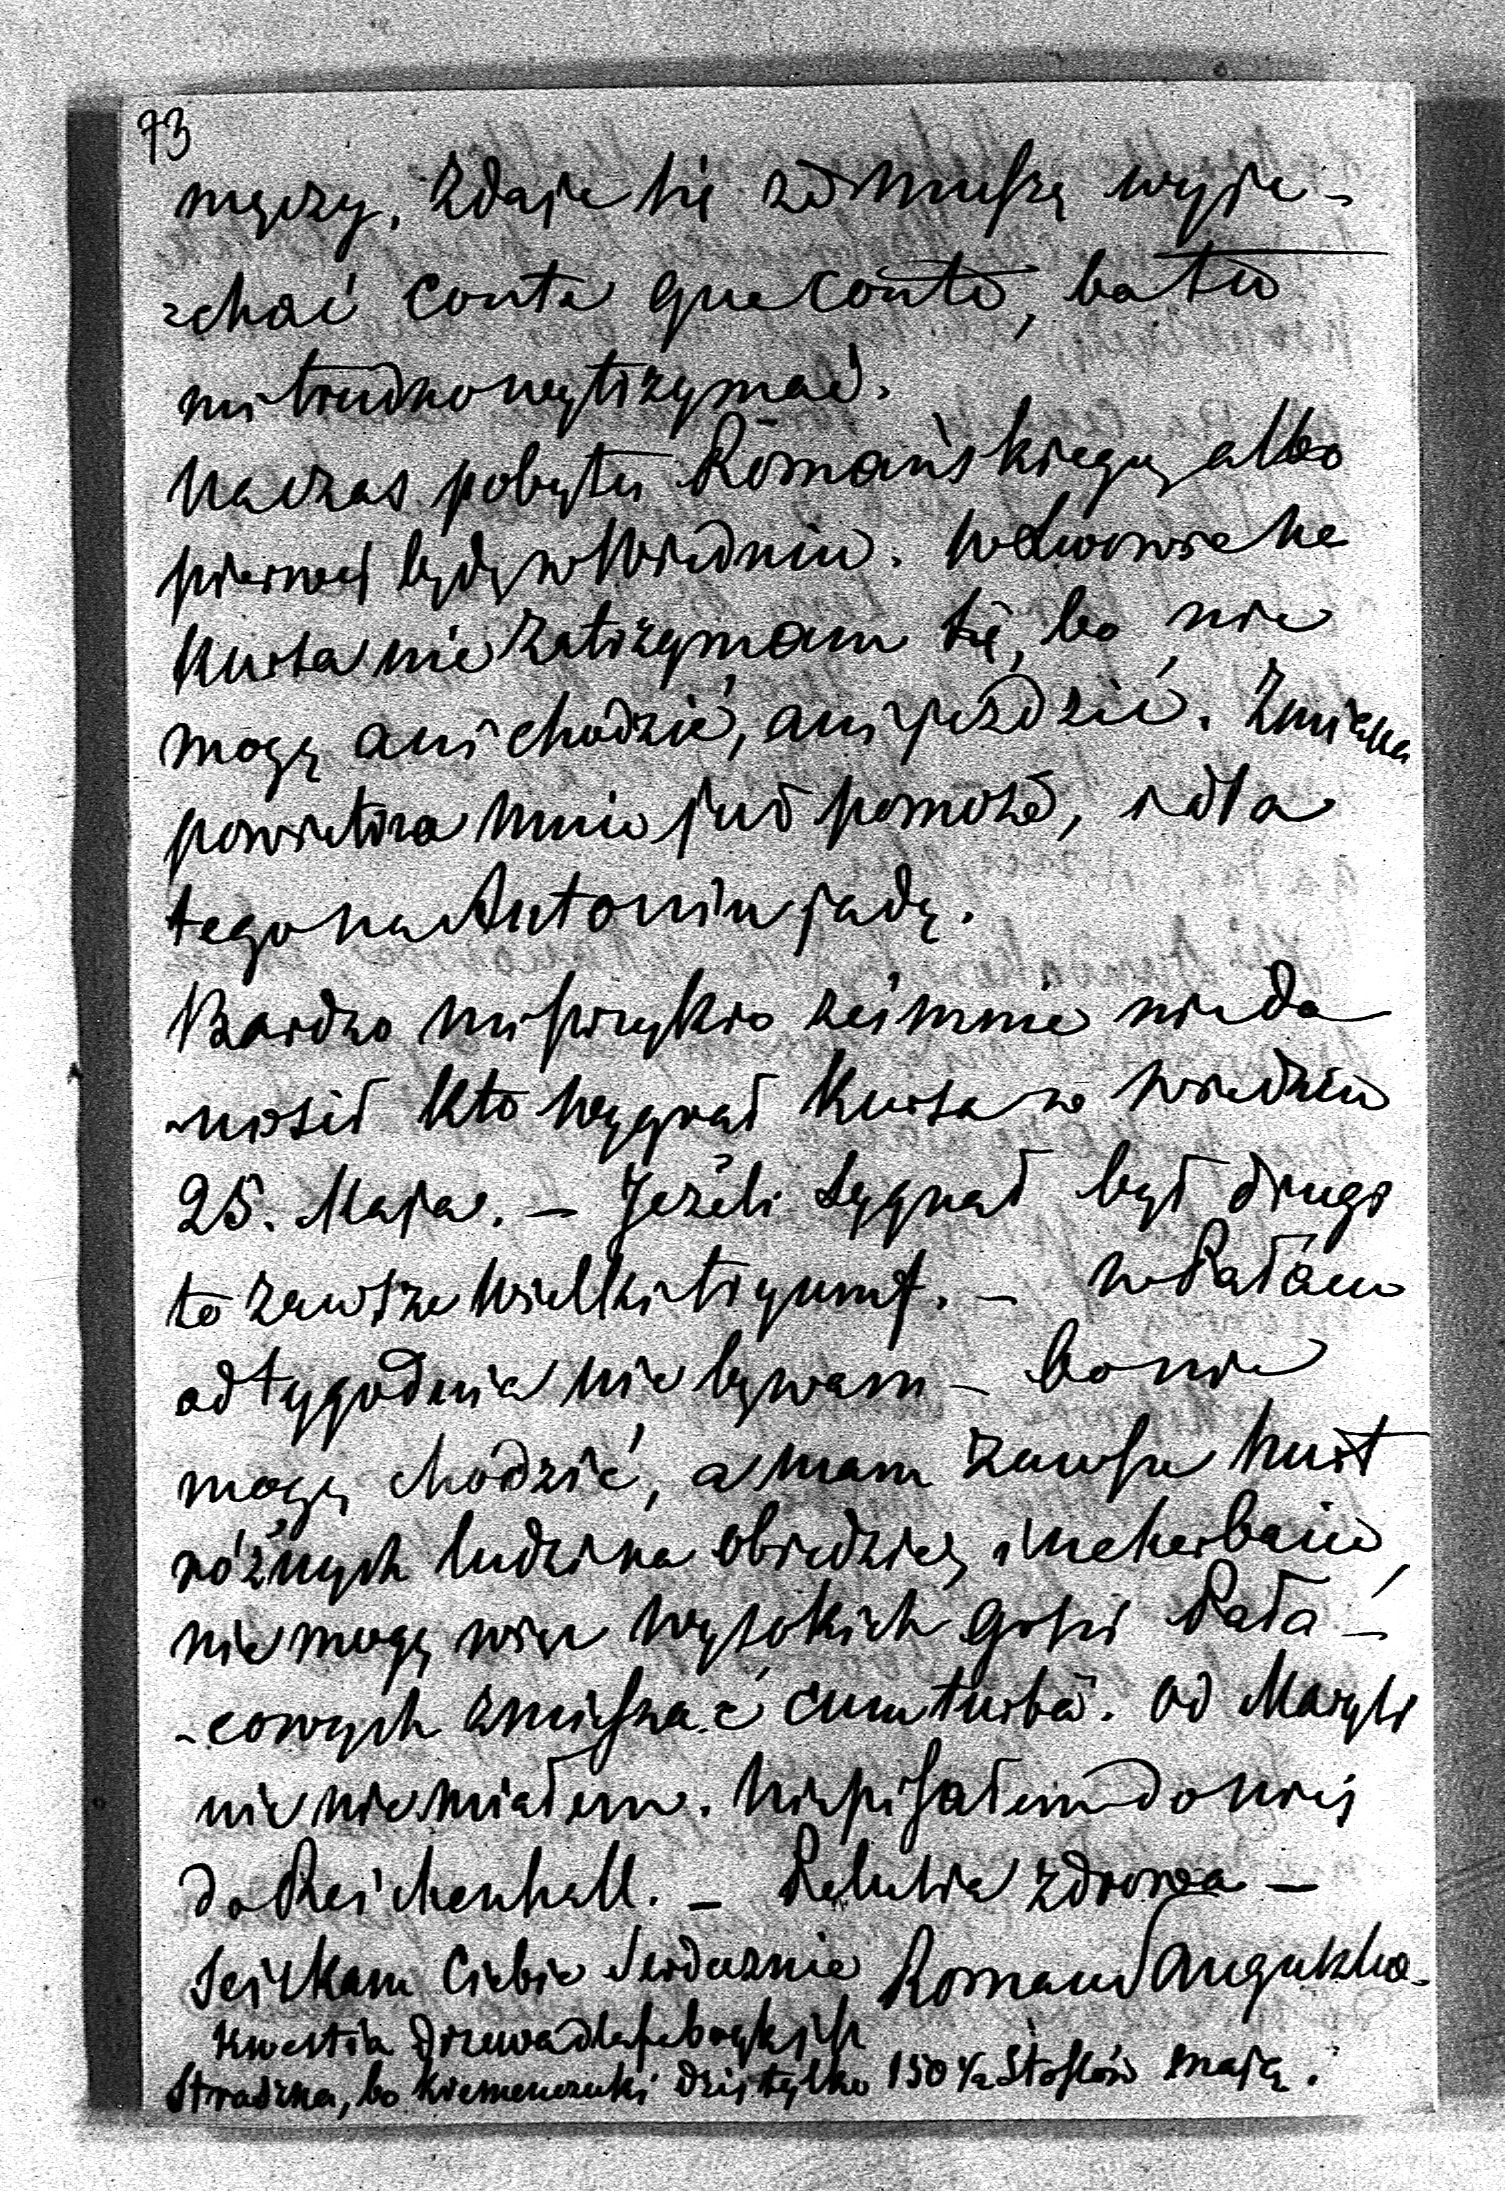 73
męczy. Zdaje się że muszę wyje-
-chać coute que coute, bo tu
mi trudno wytrzymać.
Na czas pobytu Romańskiego albo
pierwej będę w Wiedniu. We Lwowie na
kursa nie zatrzymam się, bo nie
mogę ani chodzić, ani jeździć. Zmiana
powietrza mnie już pomoże, i dla
tego na Antonin jadę.
Bardzo mi przykro żeś mnie nie do
-niosł kto wygrał kursa w Wiedniu
25. Maja. — Jeżeli Sygnał był drugi
to zawsze wielki tryumf. — W Pałacu
od tygodnia nie bywam — bo nie
mogę chodzić, a mam zawsze hurt
różnych ludzi na obiedzie, i na herbacie,
nie mogę więc wysokich gości Pała-
-cowych zmieszać cum turba. Od Maryli
nic nie miałem. Napisałem do niej
do Reichenhall. — zdrowa —
Ściskam Ciebie serdecznie Roman Sanguszko
Kwestia drzewa dla fabryk jest
straszna, bo Kremenczuki dziś tylko 150 ½ Stosów mają.